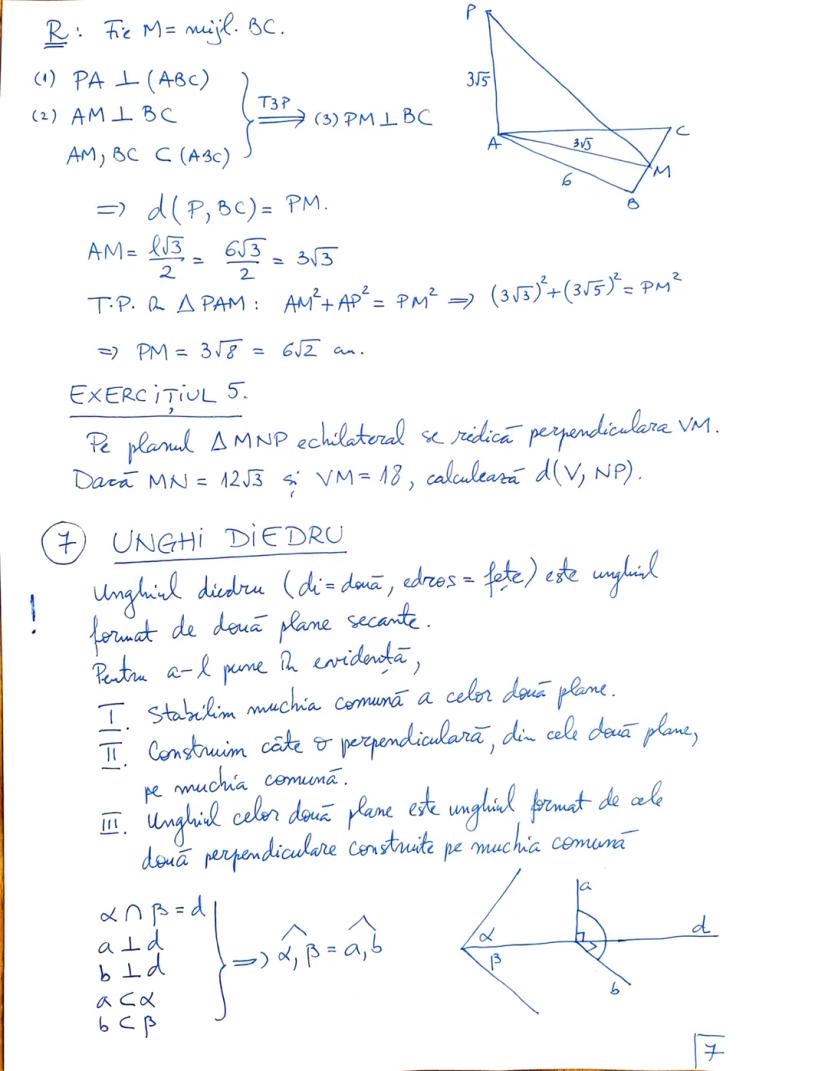 R: Fie M = mijl. BC.
(1) PA ⊥ (ABC)
(2) AM ⊥ BC
AM, BC ⊂ (ABC)
T3P ⟹ (3) PM ⊥ BC
P
3√5
A
3√3
6
C
M
B
⟹ d(P, BC) = PM.
AM = l√3/2 = 6√3/2 = 3√3
T.P. în △PAM: AM² + AP² = PM² ⟹ (3√3)² + (3√5)² = PM²
⟹ PM = 3√8 = 6√2 cm.
EXERCIȚIUL 5.
Pe planul △MNP echilateral se ridică perpendiculara VM.
Dacă MN = 12√3 și VM = 18, calculează d(V, NP).
7 UNGHI DIEDRU
! Unghiul diedru (di = două, edros = fețe) este unghiul
format de două plane secante.
Pentru a-l pune în evidență,
I. Stabilim muchia comună a celor două plane.
II. Construim câte o perpendiculară, din cele două plane,
pe muchia comună.
III. Unghiul celor două plane este unghiul format de cele
două perpendiculare construite pe muchia comună
α ∩ β = d
a ⊥ d
b ⊥ d
a ⊂ α
b ⊂ β
⟹ α, β = a, b
α
β
a
d
b
7